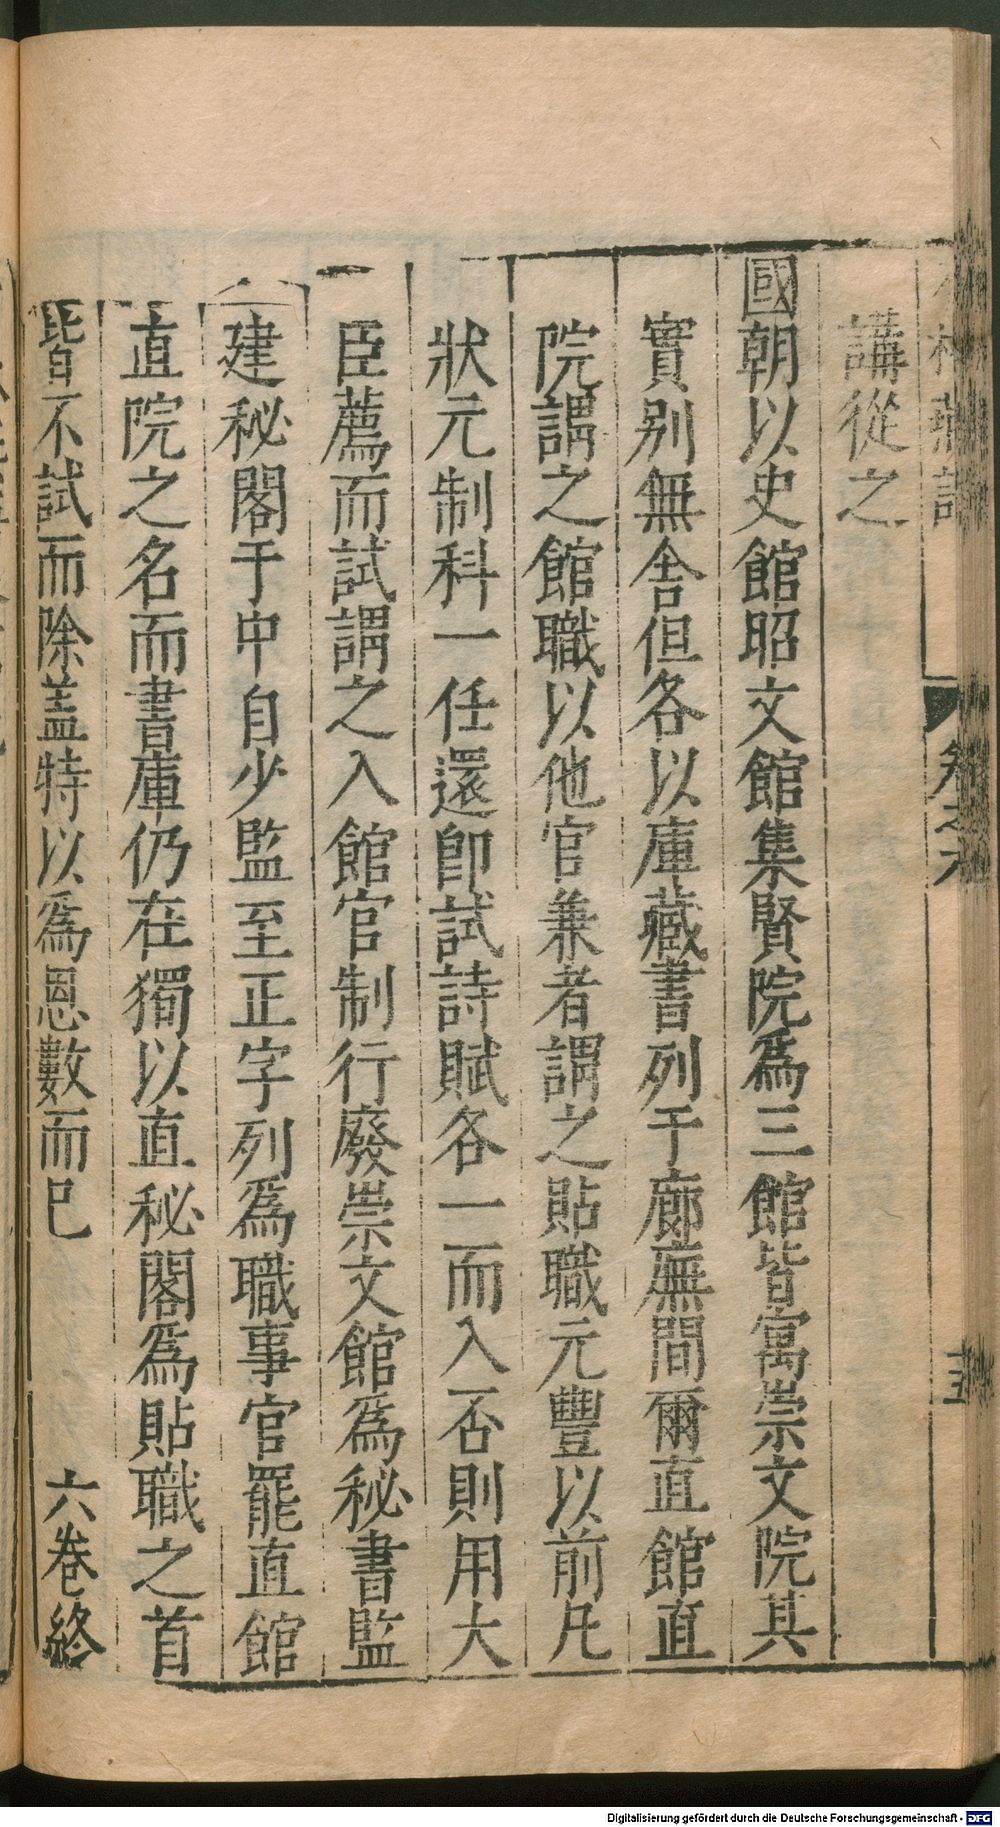 石林燕語 卷之六 五
講從之
國朝以史館昭文館集賢院爲三館皆寓崇文院其
實别無舎但各以庫藏書列于廊廡間爾直館直
院謂之館職以他官兼者謂之貼職元豐以前凡
狀元制科一任還卽試詩賦各一而入否則用大
臣薦而試謂之入館官制行廢崇文館爲秘書監
建秘閣于中自少監至正字列爲職事官罷直館
直院之名而書庫仍在獨以直秘閣爲貼職之首
皆不試而除盖特以爲恩數而已
六卷終
Digitalisierung gefördert durch die Deutsche Forschungsgemeinschaft - DFG